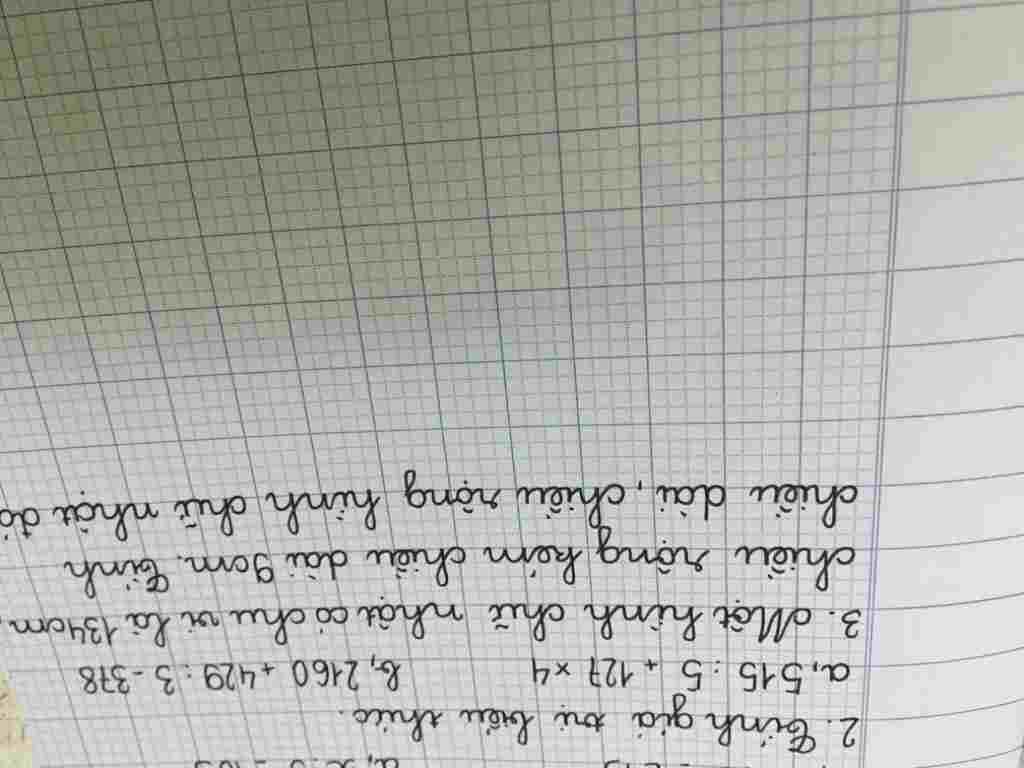 2. Tính giá trị biểu thức.
a, 515 : 5 + 127 × 4 b, 2160 + 429 : 3 - 378
3. Một hình chữ nhật có chu vi là 134cm,
chiều rộng kém chiều dài 9cm. Tính
chiều dài, chiều rộng hình chữ nhật đó